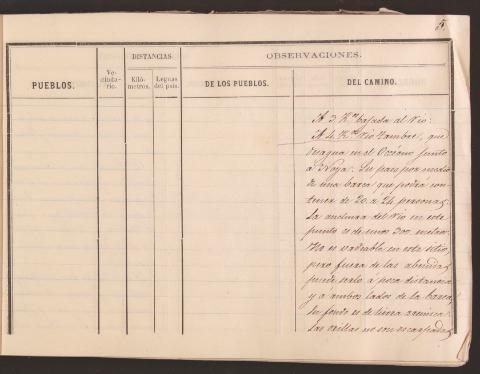 5
DISTANCIAS.
OBSERVACIONES.
PUEBLOS.
Ve-
cinda-
rio.
Kiló-
metros.
Leguas
del pais.
DE LOS PUEBLOS.
DEL CAMINO.
A 3. Km bajada al rio:
A 4. Km rio Tambre, que
desagua en el Océano junto
á Noya. Su paso por medio
de una barca que podrá con-
tener de 20. á 24 personas.
La anchura del rio en este
punto es de unos 300. metros.
No es vadeable en este sitio,
pero fuera de las abenidas
puede serlo á poca distancia
y á ambos lados de la barca,
Su fondo es de tierra arenisca
Las orillas no son escarpadas